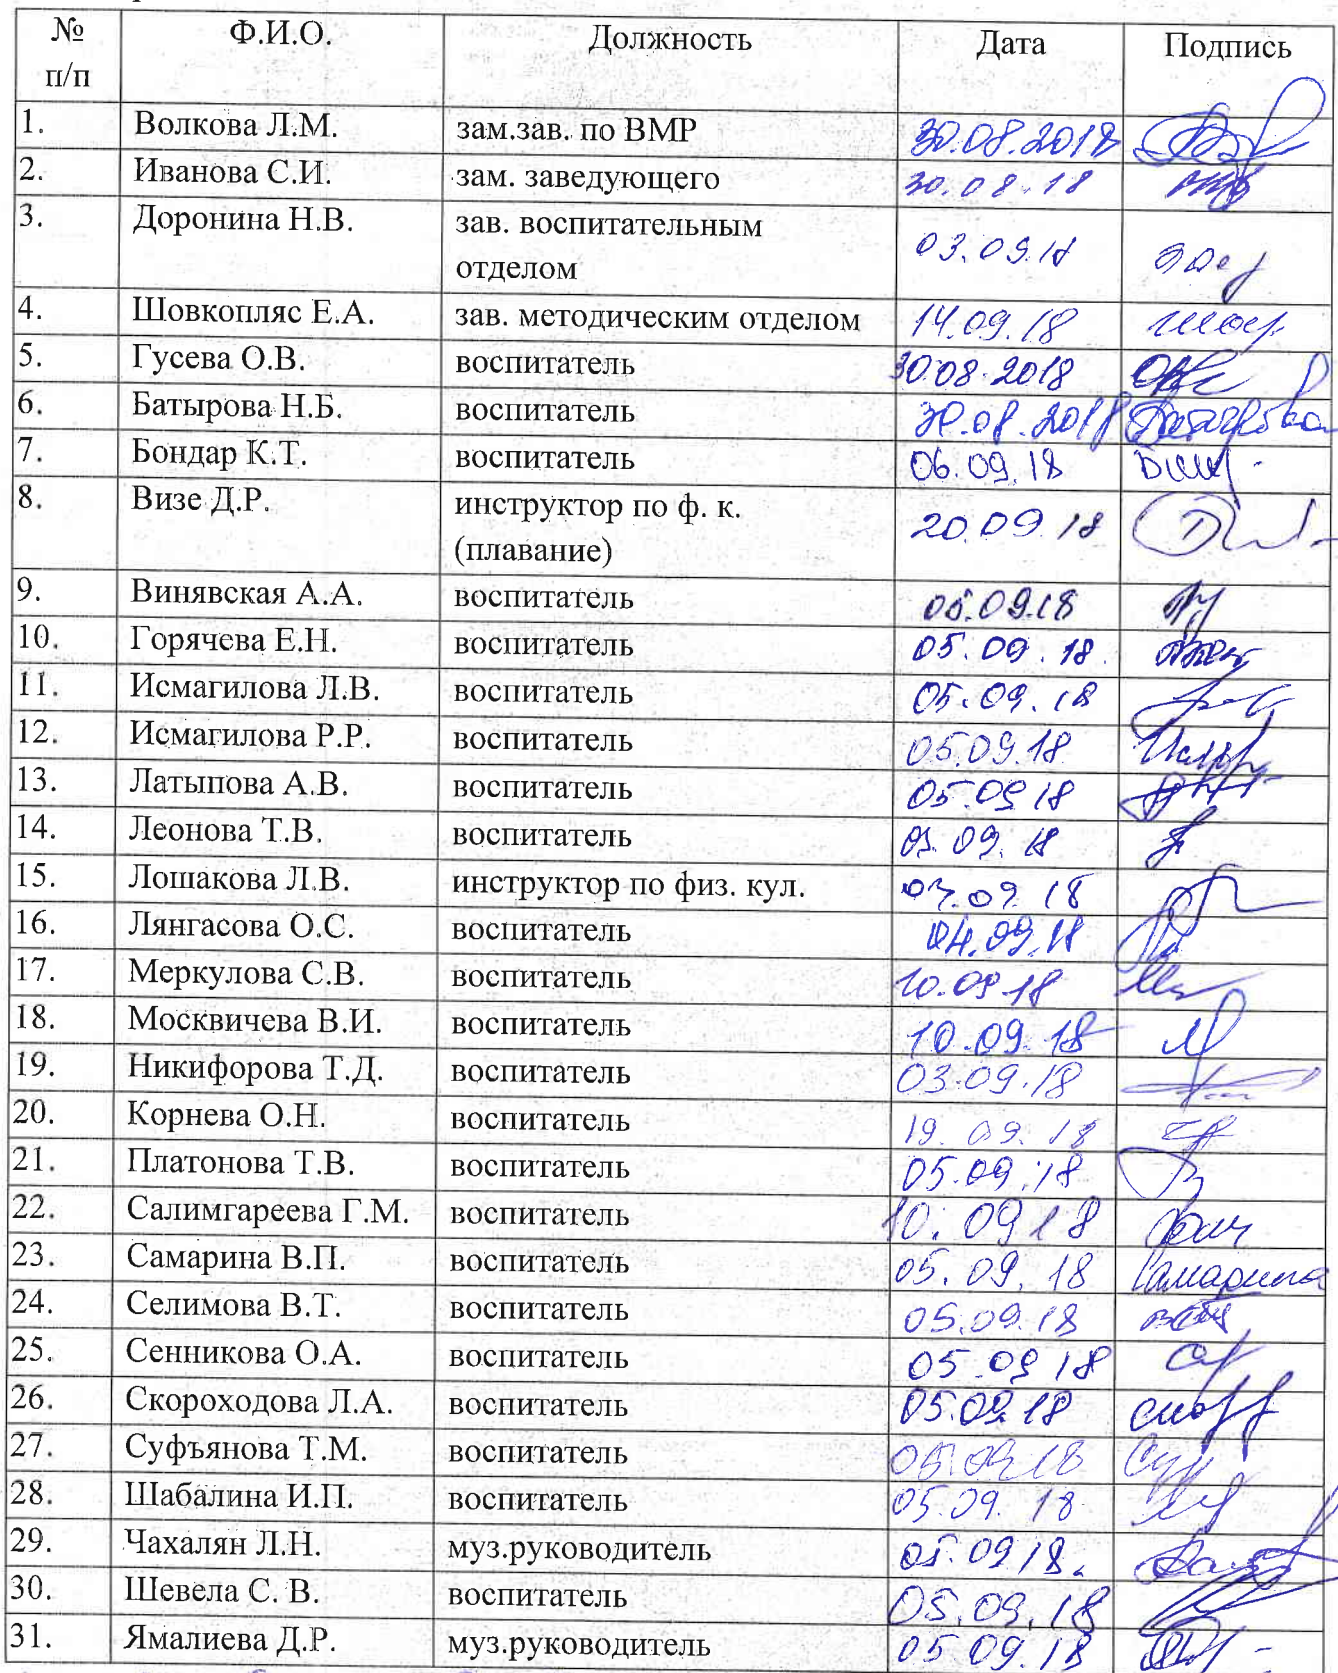 № п/п Ф.И.О. Должность Дата Подпись
1. Волкова Л.М. зам.зав. по ВМР 30.08.2018
2. Иванова С.И. зам. заведующего 30.08.18
3. Доронина Н.В. зав. воспитательным
отделом 03.09.18
4. Шовкопляс Е.А. зав. методическим отделом 14.09.18
5. Гусева О.В. воспитатель 30.08.2018
6. Батырова Н.Б. воспитатель 30.08.2018
7. Бондар К.Т. воспитатель 06.09.18
8. Визе Д.Р. инструктор по ф. к.
(плавание) 20.09.18
9. Винявская А.А. воспитатель 05.09.18
10. Горячева Е.Н. воспитатель 05.09.18.
11. Исмагилова Л.В. воспитатель 05.09.18
12. Исмагилова Р.Р. воспитатель 05.09.18
13. Латыпова А.В. воспитатель 05.09.18
14. Леонова Т.В. воспитатель
15. Лошакова Л.В. инструктор по физ. кул.
16. Лянгасова О.С. воспитатель 04.09.18
17. Меркулова С.В. воспитатель 10.09.18
18. Москвичева В.И. воспитатель 10.09.18
19. Никифорова Т.Д. воспитатель 03.09.18
20. Корнева О.Н. воспитатель 19.09.18
21. Платонова Т.В. воспитатель 05.09.18
22. Салимгареева Г.М. воспитатель 10.09.18
23. Самарина В.П. воспитатель 05.09.18 Самарина
24. Селимова В.Т. воспитатель 05.09.18
25. Сенникова О.А. воспитатель 05.09.18
26. Скороходова Л.А. воспитатель 05.09.18
27. Суфъянова Т.М. воспитатель 05.09.18
28. Шабалина И.П. воспитатель 05.09.18
29. Чахалян Л.Н. муз.руководитель 05.09.18.
30. Шевела С. В. воспитатель 05.09.18
31. Ямалиева Д.Р. муз.руководитель 05.09.18